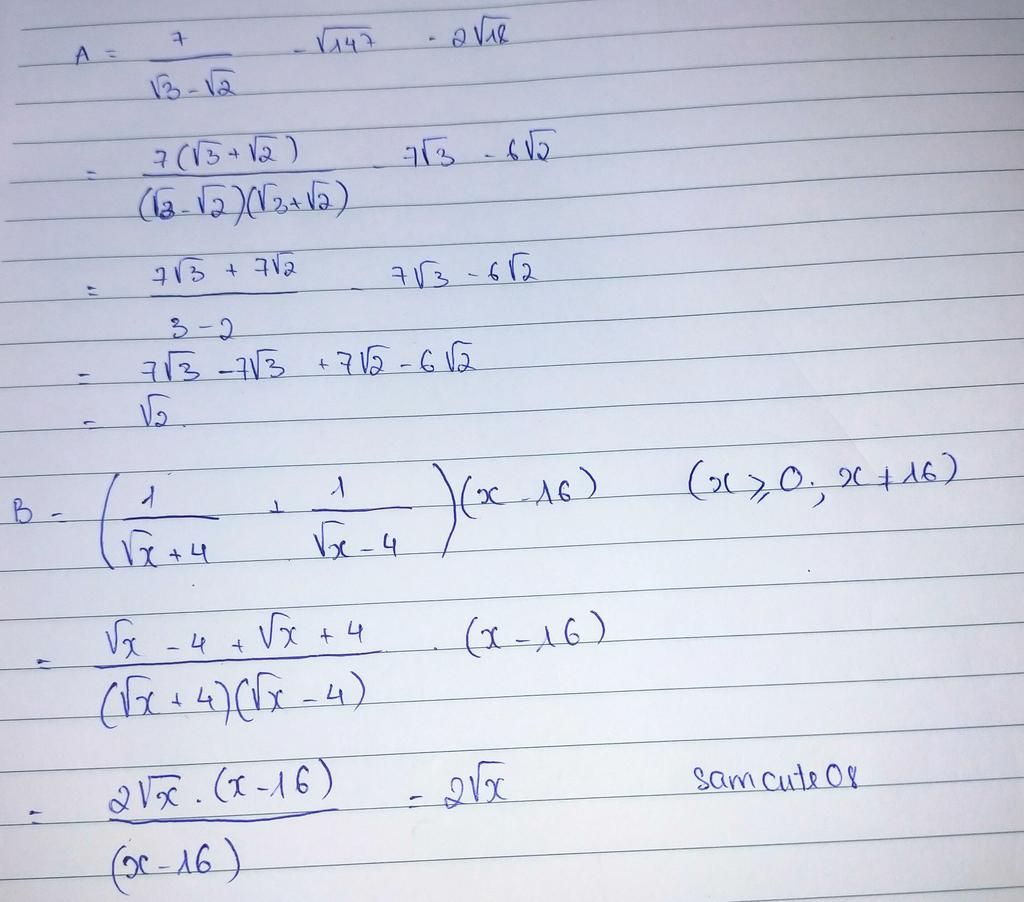 A = 7/(√3 - √2) - √147 - 2√18
= 7(√3 + √2)/((√3 - √2)(√3 + √2)) - 7√3 - 6√2
= (7√3 + 7√2)/(3 - 2) - 7√3 - 6√2
= 7√3 - 7√3 + 7√2 - 6√2
= √2.
B = (1/(√x + 4) + 1/(√x - 4))(x - 16) (x ≥ 0; x ≠ 16)
= (√x - 4 + √x + 4)/((√x + 4)(√x - 4)) . (x - 16)
= (2√x . (x - 16))/(x - 16) = 2√x samcute08